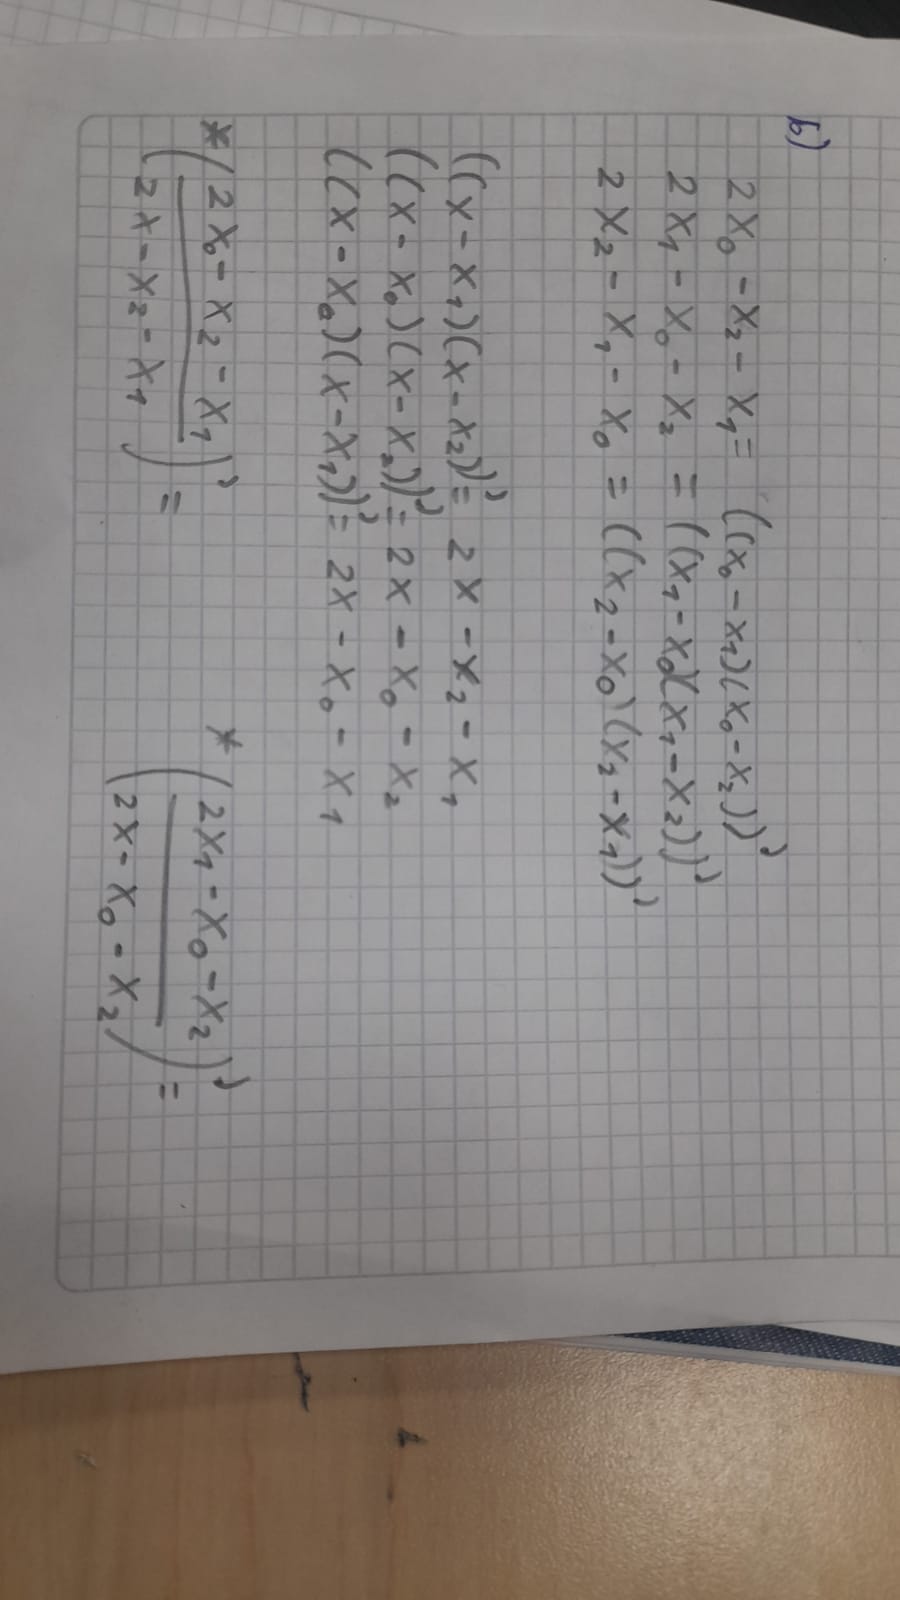 b)
2x₀ - x₂ - x₁ = ((x₀ - x₁)(x₀ - x₂))'
2x₁ - x₀ - x₂ = ((x₁ - x₀)(x₁ - x₂))'
2x₂ - x₁ - x₀ = ((x₂ - x₀)(x₂ - x₁))'
((x - x₁)(x - x₂))' = 2x - x₂ - x₁
((x - x₀)(x - x₂))' = 2x - x₀ - x₂
((x - x₀)(x - x₁))' = 2x - x₀ - x₁
* (2x₀ - x₂ - x₁ / 2x - x₂ - x₁)' = * (2x₁ - x₀ - x₂ / 2x - x₀ - x₂)' =